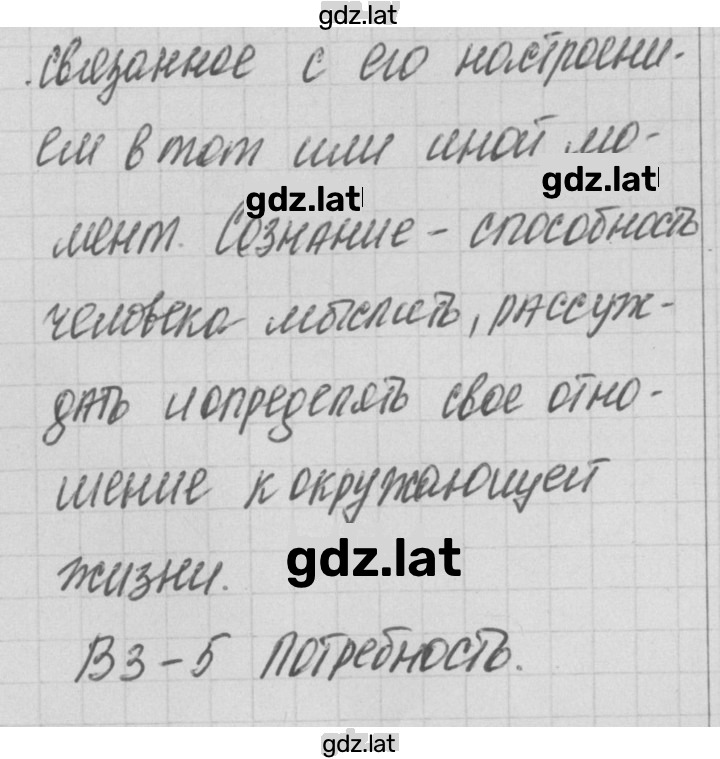 gdz.lat
связанное с его настроени-
ем в тот или иной мо-
gdz.lat
gdz.lat
мент. Сознание - способность
человека мыслить, рассуж-
дать и определять свое отно-
шение к окружающей
gdz.lat
жизни.
В3-5 Потребность.
gdz.lat